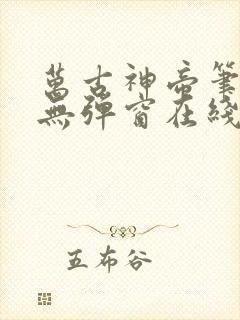 萬古神帝筆
無彈窗在綫
五布谷